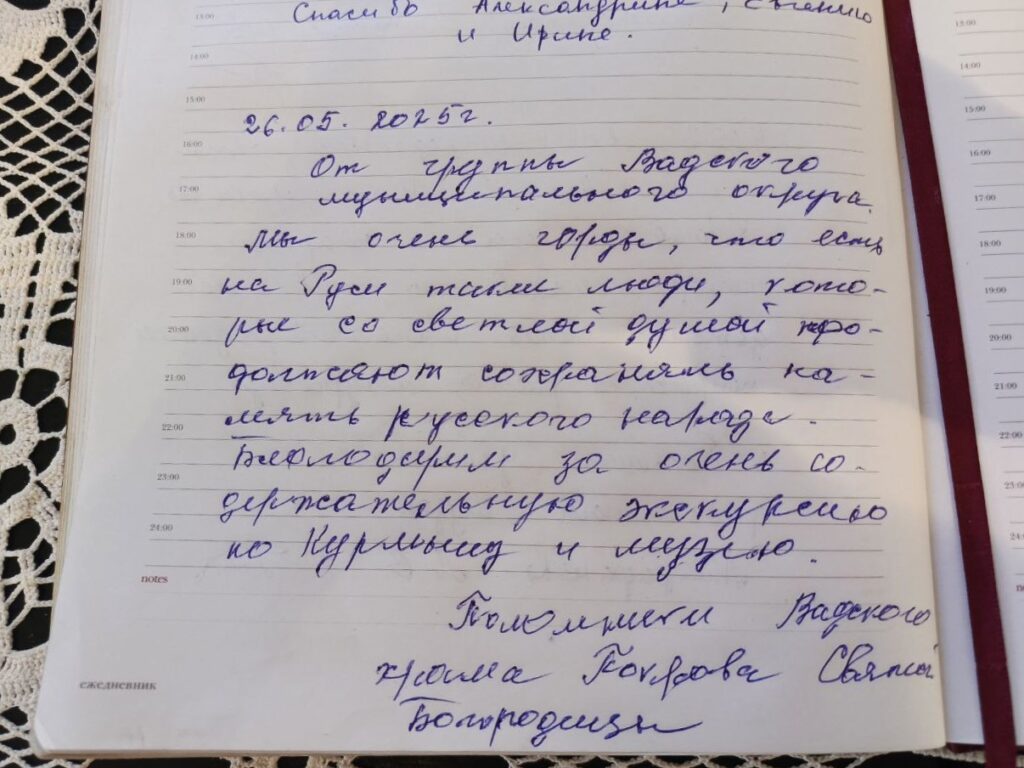 Спасибо Александрине, Евгению
и Ирине.
26.05.2025г.
От группы Вадского
муниципального округа.
Мы очень горды, что есть
на Руси такие люди, кото-
рые со светлой душой про-
должают сохранять па-
мять русского народа.
Благодарим за очень со-
держательную экскурсию
по Курмышу и музею.
Паломники Вадского
храма Покрова Святой
Богородицы
13:00
14:00
15:00
16:00
17:00
18:00
19:00
20:00
21:00
22:00
23:00
24:00
notes
ежедневник
13:00
14:00
15:00
16:00
17:00
18:00
19:00
20:00
21:00
22:00
23:00